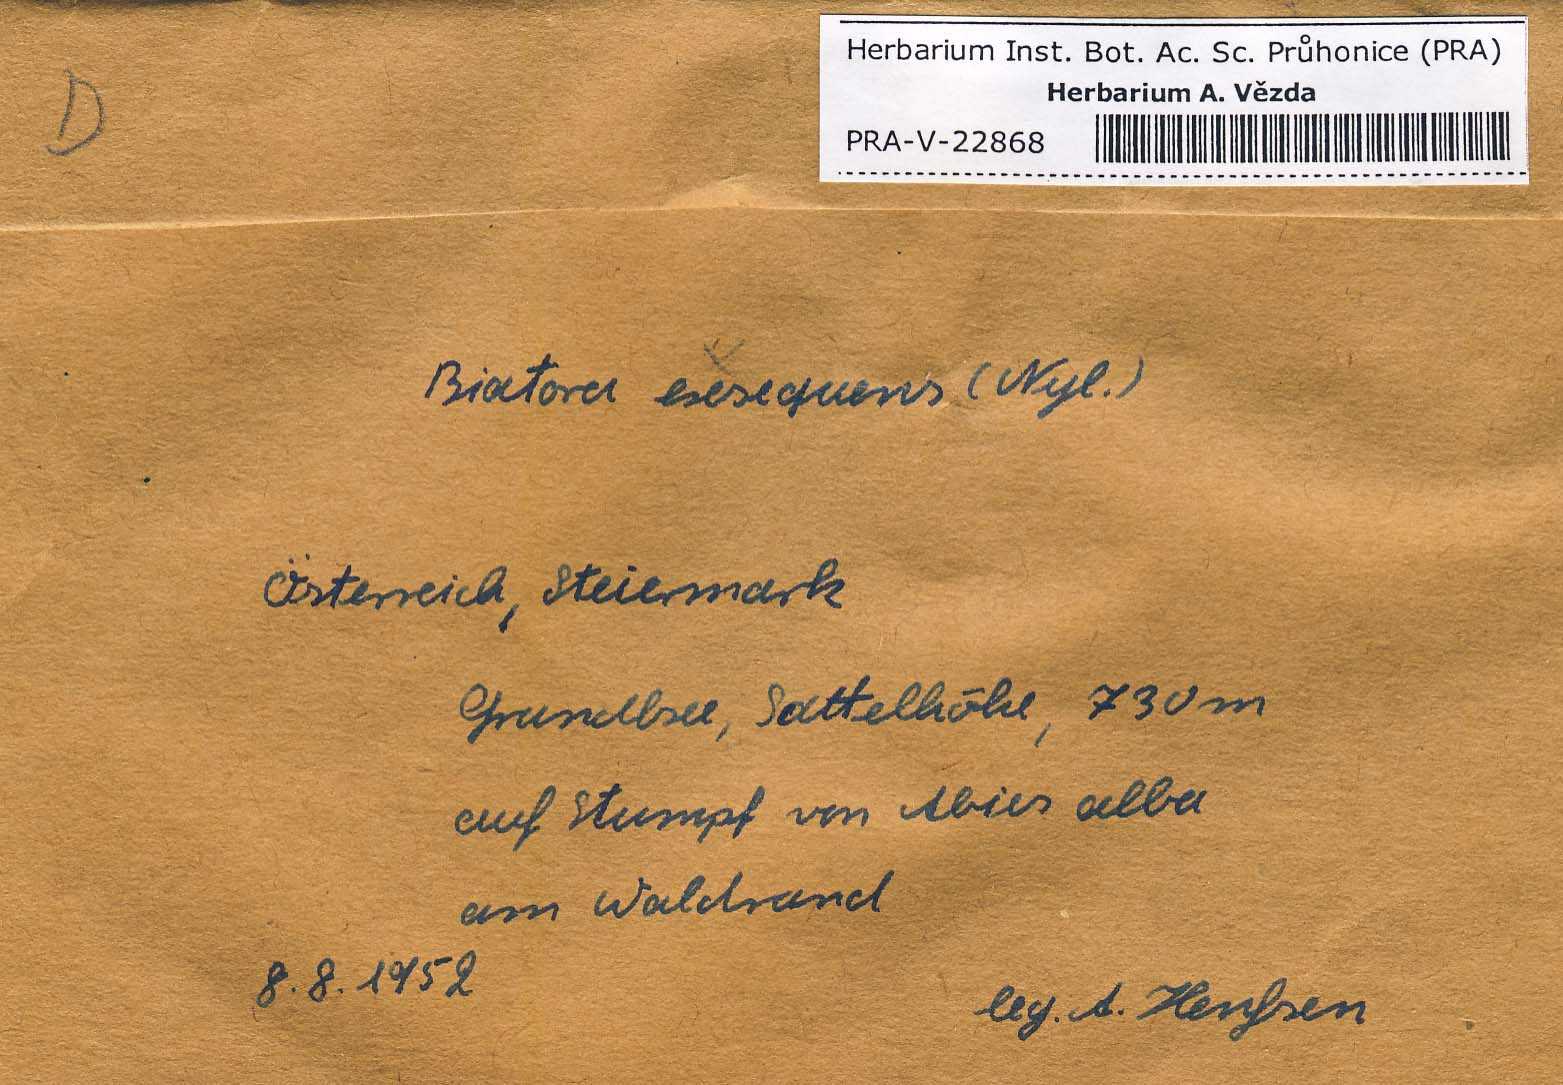 D
Herbarium Inst. Bot. Ac. Sc. Průhonice (PRA)
Herbarium A. Vězda
PRA-V-22868
Biatora exsequens (Nyl.)
Österreich, Steiermark
Grundlsee, Sattelhöhe, 730 m
auf Stumpf von Abies alba
am Waldrand
8.8.1952
leg. A.